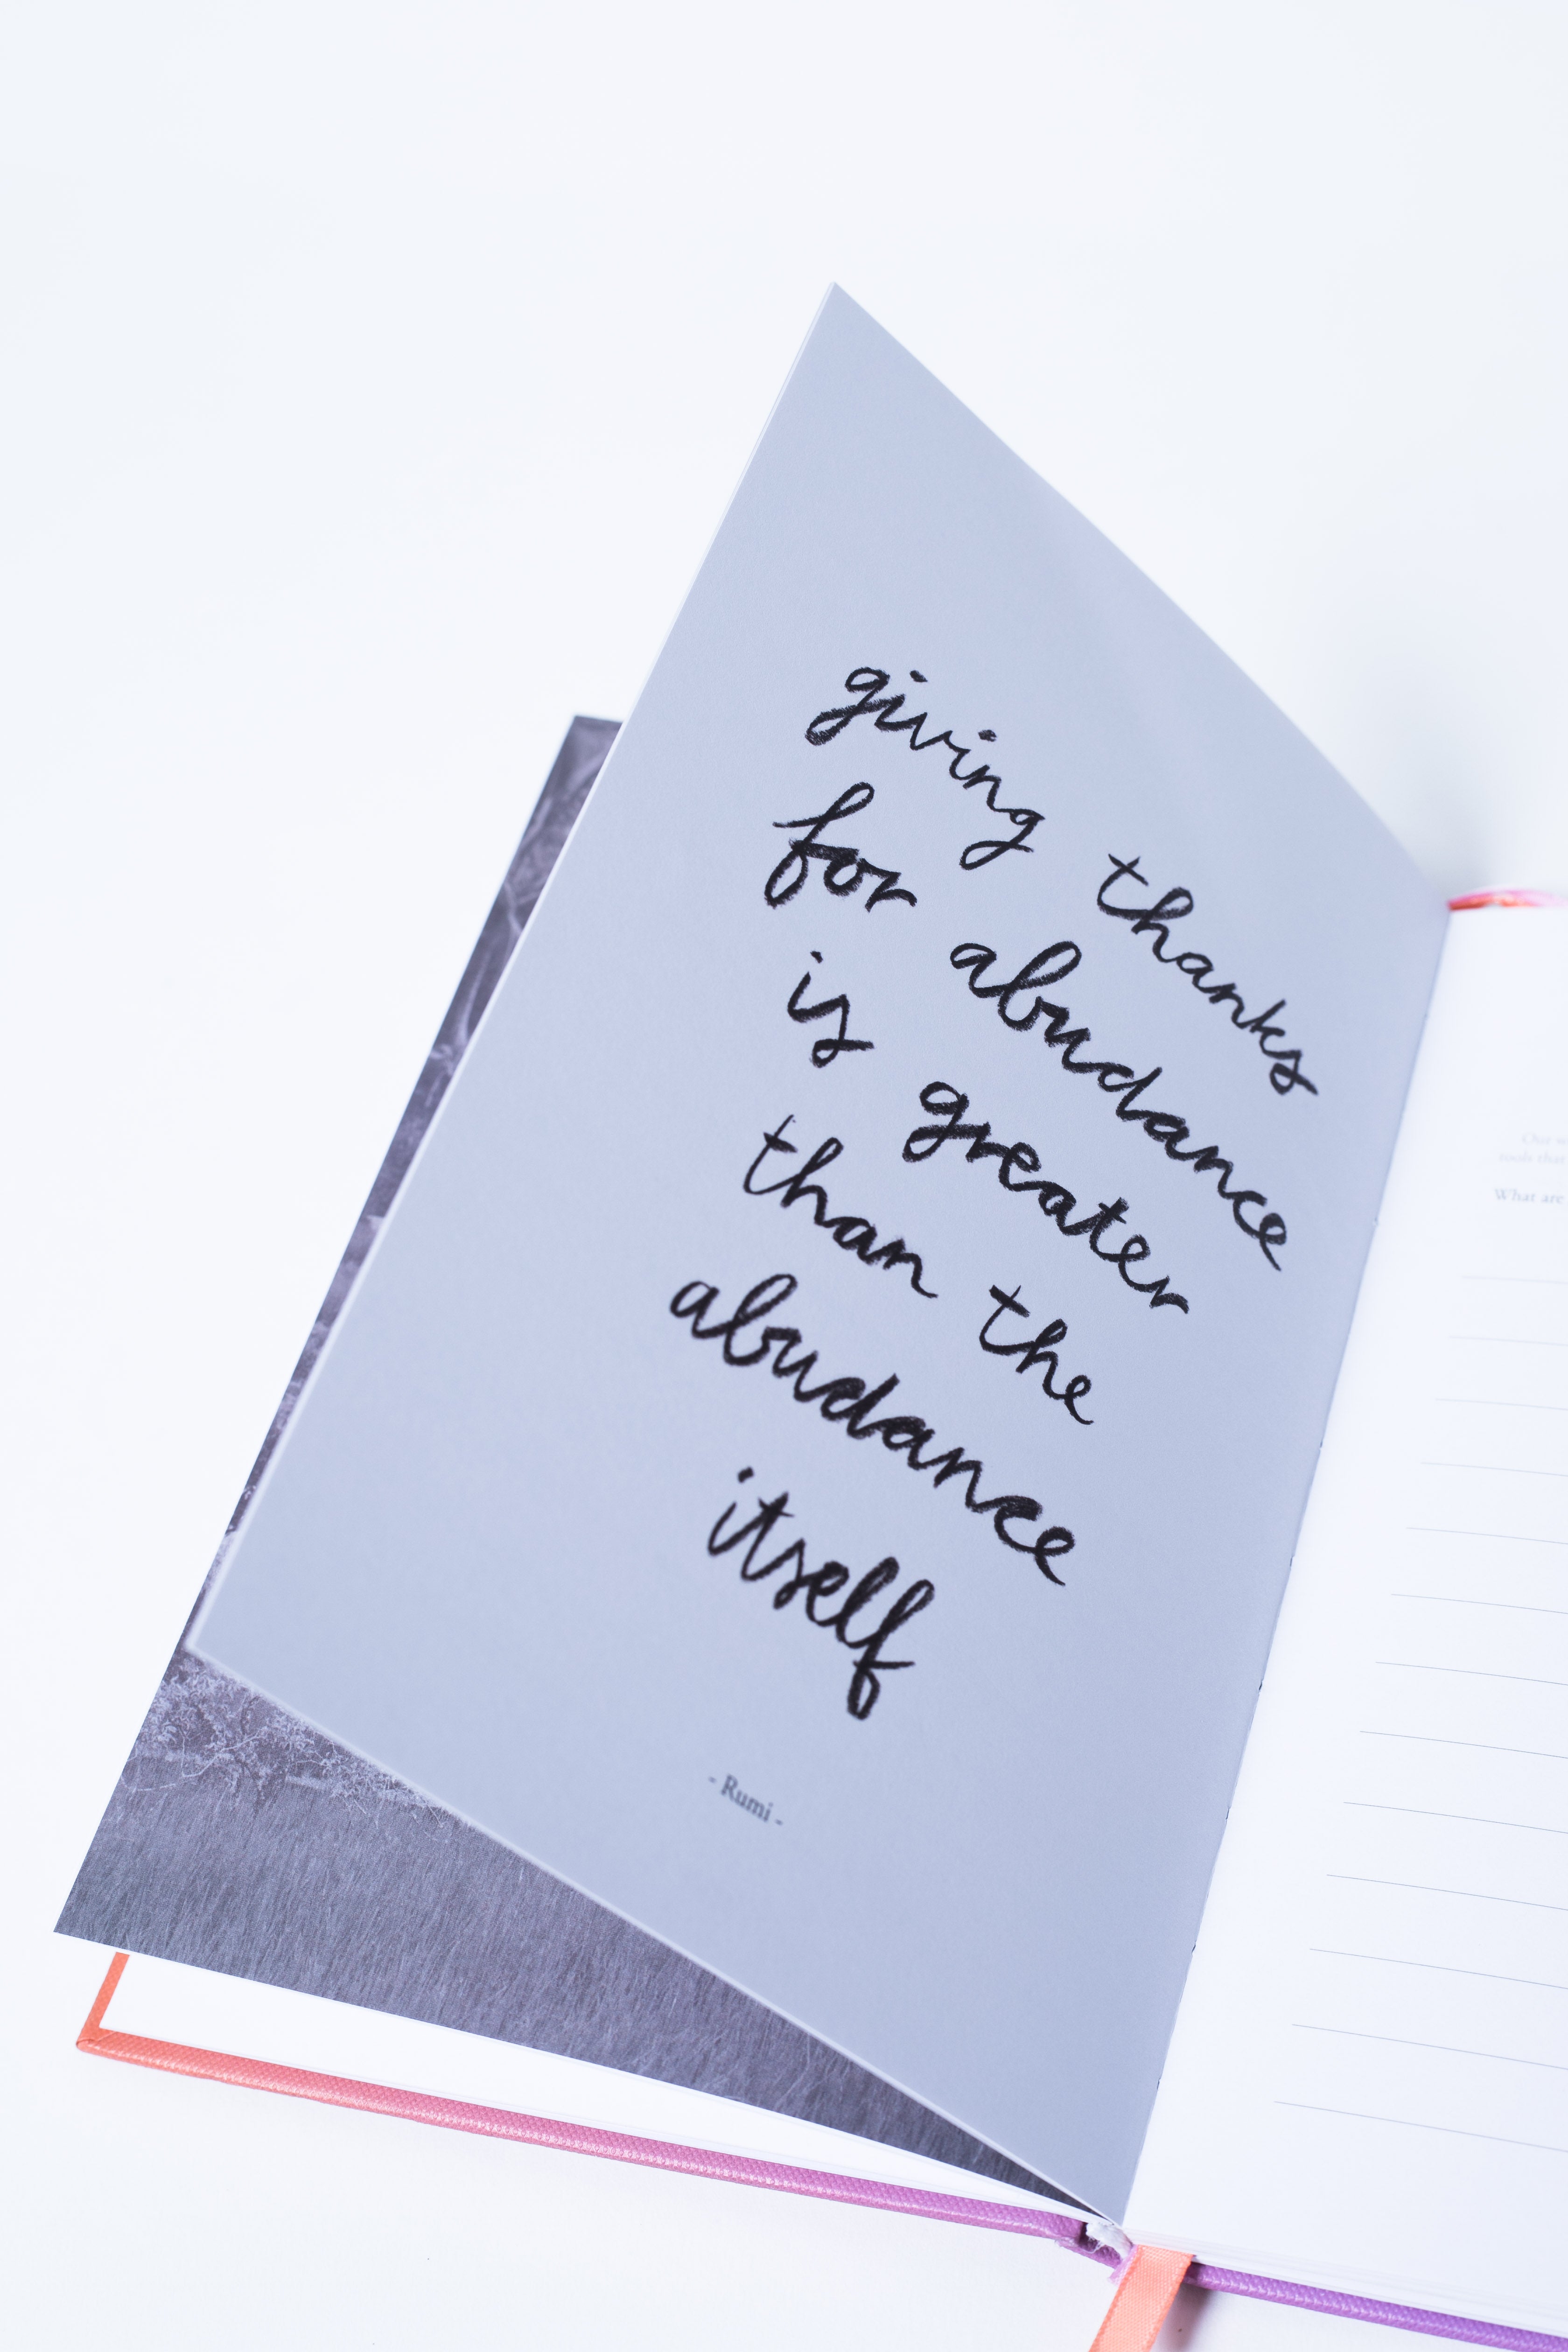 giving thanks
for abudance
is greater
than the
abudance
itself
- Rumi -
Our w
tools that
What are